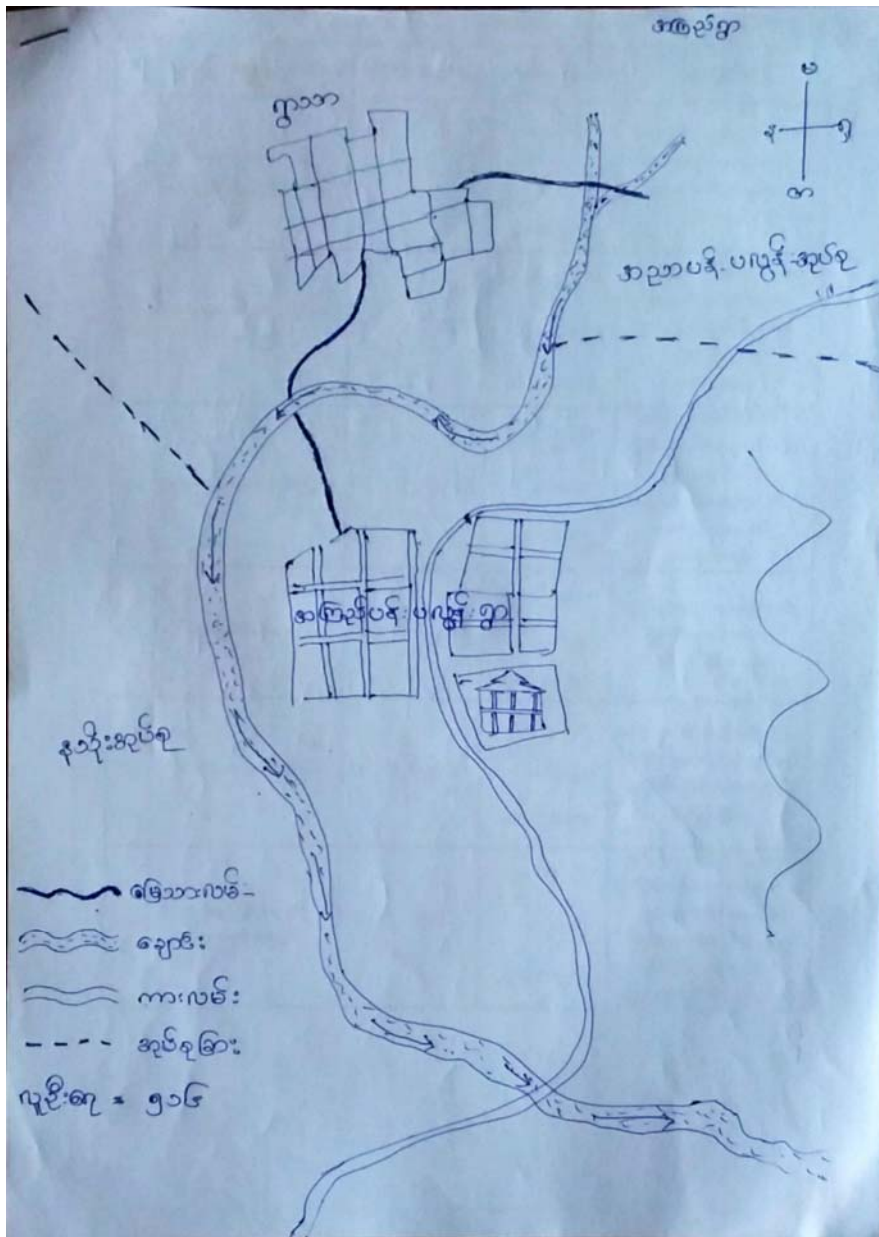 အကြည်ရွာ
ရွာသာ
မ
န
ရှ
တ
အညာပန်းပလွန်းအုပ်စု
အကြည်ပန်းပလွန်းရွာ
နသိုးအုပ်စု
မြေသားလမ်း
ချောင်း
ကားလမ်း
အုပ်စုခြား
လူဦးရေ = ၅၁၆